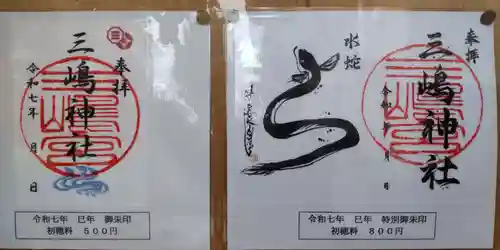 奉拝
三嶋神社
令和七年 月 日
令和七年 巳年 御朱印
初穂料 500円
奉拝
三嶋神社
令和七年 月 日
水蛇
令和七年 巳年 特別御朱印
初穂料 800円